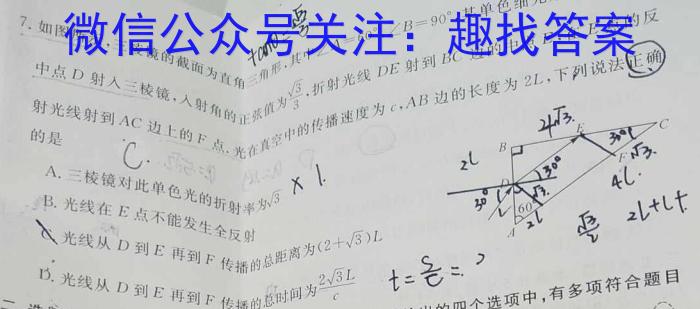 微信公众号关注：趣找答案
7. 如图 三棱镜的截面为直角三角形，其中 ∠B=90° 其单色细光
中点 D 射入三棱镜，入射角的正弦值为√3/3，折射光线 DE 射到 BC 边的中 E 的反
射光线射到 AC 边上的 F 点. 光在真空中的传播速度为 c, AB 边的长度为 2L，下列说法正确
的是
C.
A. 三棱镜对此单色光的折射率为√3
× 1.
B. 光线在 E 点不能发生全反射
C. 光线从 D 到 E 再到 F 传播的总距离为(2+√3)L
D. 光线从 D 到 E 再到 F 传播的总时间为2√3L/c
B
E
C
F
D
A
60°
30°
30°
30°
2L
4√3
√3.
4L
2L
√3/2
2L+L+
t=S/C=
的四个选项中，有多项符合题目